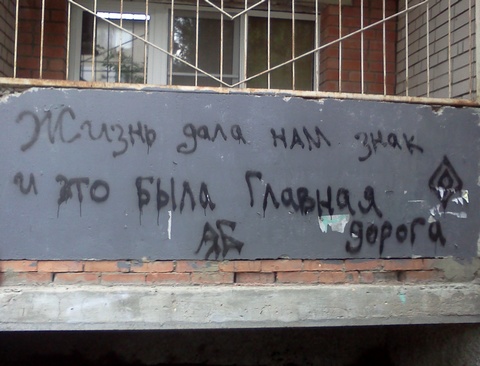 Жизнь дала нам знак
и это была Главная
дорога
АБ